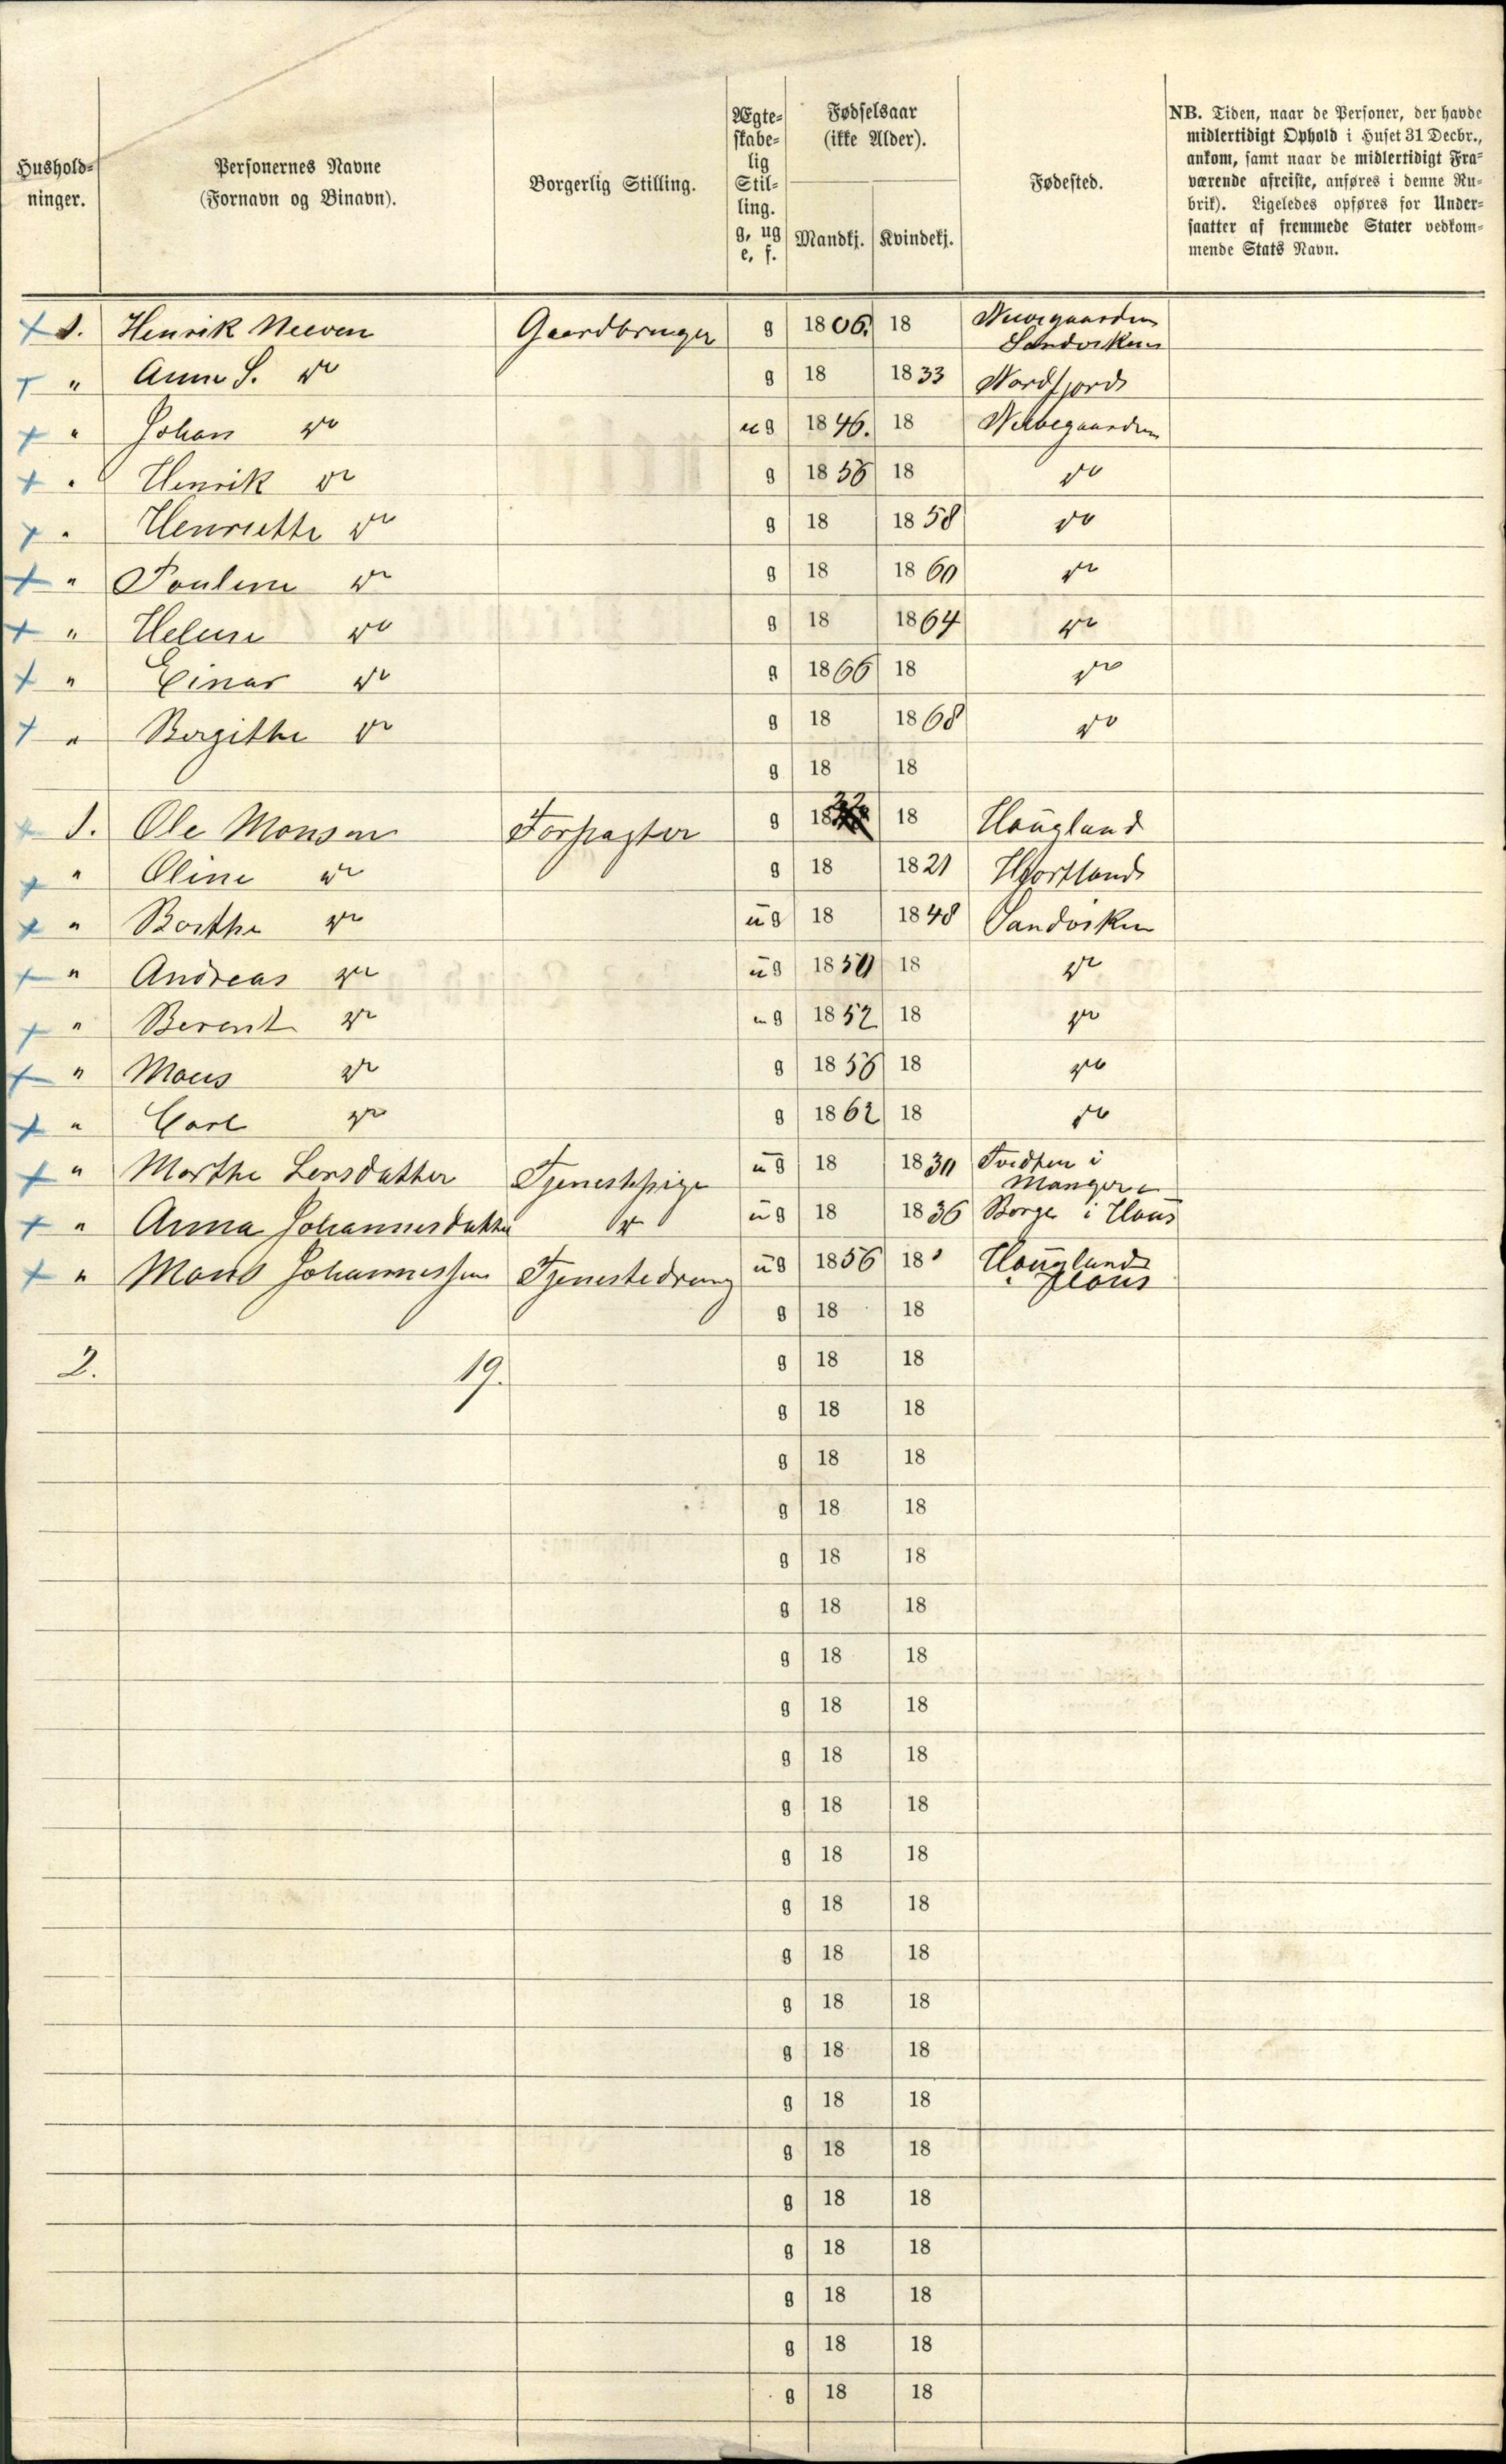 Hushold-
ninger.
Personernes Navne
(Fornavn og Binavn).
Borgerlig Stilling.
Ægte-
skabe-
lig
Stil-
ling.
g, ug
e, f.
Fødselsaar
(ikke Alder).
Mandkj. Kvindekj.
Fødested.
NB. Tiden, naar de Personer, der havde
midlertidigt Ophold i Huset 31 Decbr.,
ankom, samt naar de midlertidigt Fra-
værende afreiste, anføres i denne Ru-
brik). Ligeledes opføres for Under-
saatter af fremmede Stater vedkom-
mende Stats Navn.
1. Henrik Meeven Gaardbruger g 1806. 18
Sandviken
" Anne S. do g 18 1833 Nordfjord
" Johan do ug 1846. 18
" Henrik do g 1856 18 do
" Henriette do g 18 1858 do
" Pouline do g 18 1860 do
" Helene do g 18 1864 do
" Einar do g 1866 18 do
" Bergithe do g 18 1868 do
g 18 18
1. Ole Monsen Forpagter g 18 18 Haugland
" Oline do g 18 1821 Hjortland
" Berthe do ug 18 1848 Sandviken
" Andreas do ug 1850 18 do
" Berent do ug 1852 18 do
" Mons do g 1856 18 do
" Carl do g 1862 18 do
" Marthe Larsdatter Tjenestpige ug 18 1830 Tvedten i
Manger
" Anna Johannesdatter do ug 18 1836 Borge i Haus
" Mons Johannessen Tjenestedreng ug 1856 18 Haugland
i Haus
g 18 18
2. 19. g 18 18
g 18 18
g 18 18
g 18 18
g 18 18
g 18 18
g 18 18
g 18 18
g 18 18
g 18 18
g 18 18
g 18 18
g 18 18
g 18 18
g 18 18
g 18 18
g 18 18
g 18 18
g 18 18
g 18 18
g 18 18
g 18 18